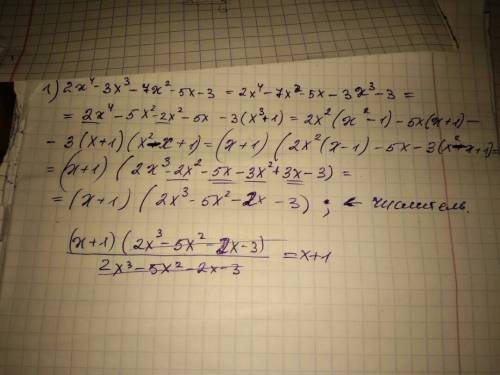 1) 2x⁴-3x³-7x²-5x-3 = 2x⁴-7x²-5x-3x³-3 =
= 2x⁴-5x²-2x²-5x -3(x³+1) = 2x²(x²-1)-5x(x+1)-
-3(x+1)(x²-x+1) = (x+1)(2x²(x-1)-5x-3(x²-x+1)=
= (x+1)(2x³-2x²-5x-3x²+3x-3) =
= (x+1)(2x³-5x²-2x-3); ← числитель.
(x+1)(2x³-5x²-2x-3)
2x³-5x²-2x-3 = x+1